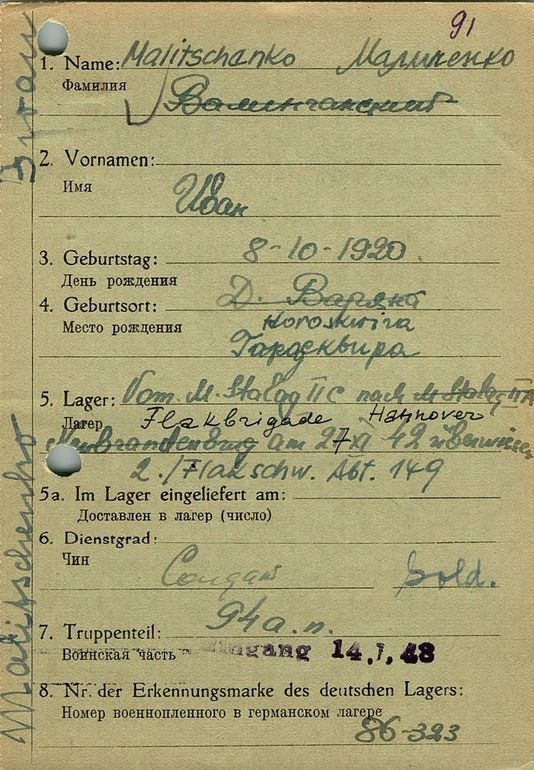 91
1. Name: Malitschenko Маличенко
Фамилия
2. Vornamen:
Имя Иван
3. Geburtstag: 8-10-1920
День рождения
4. Geburtsort: Д. Варяна
Место рождения Horoskwira
5. Lager: Vom. M. Stalag II C nach M Stalag II A
Лагер Flakbrigade Hannover
Neubrandenburg am 27 XI 42 überwiesen
2./Flakschw. Abt. 149
5a. Im Lager eingeliefert am:
Доставлен в лагер (число)
6. Dienstgrad:
Чин Солдат Sold.
7. Truppenteil: 94 а.п.
Воинская часть Eingang 14. 1. 43
8. Nr. der Erkennungsmarke des deutschen Lagers:
Номер военнопленного в германском лагере
86-323
Iwan
Malitschenko